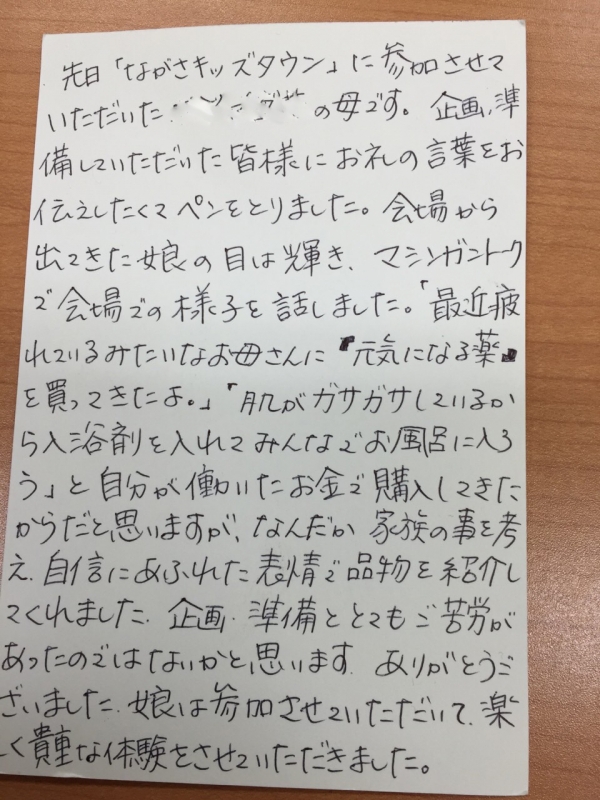 先日「ながさキッズタウン」に参加させて
いただいた の母です。企画、準
備していただいた皆様にお礼の言葉をお
伝えしたくてペンをとりました。会場から
出てきた娘の目は輝き、マシンガントーク
で会場での様子を話しました。「最近疲
れているみたいなお母さんに『元気になる薬』
を買ってきたよ。」「肌がガサガサしているか
ら入浴剤を入れてみんなでお風呂に入ろ
う」と自分が働いたお金で購入してきた
からだと思いますが、なんだか家族の事を考
え、自信にあふれた表情で品物を紹介し
てくれました。企画・準備ととてもご苦労が
あったのではないかと思います。ありがとうご
ざいました。娘は参加させていただいて、楽
しく貴重な体験をさせていただきました。